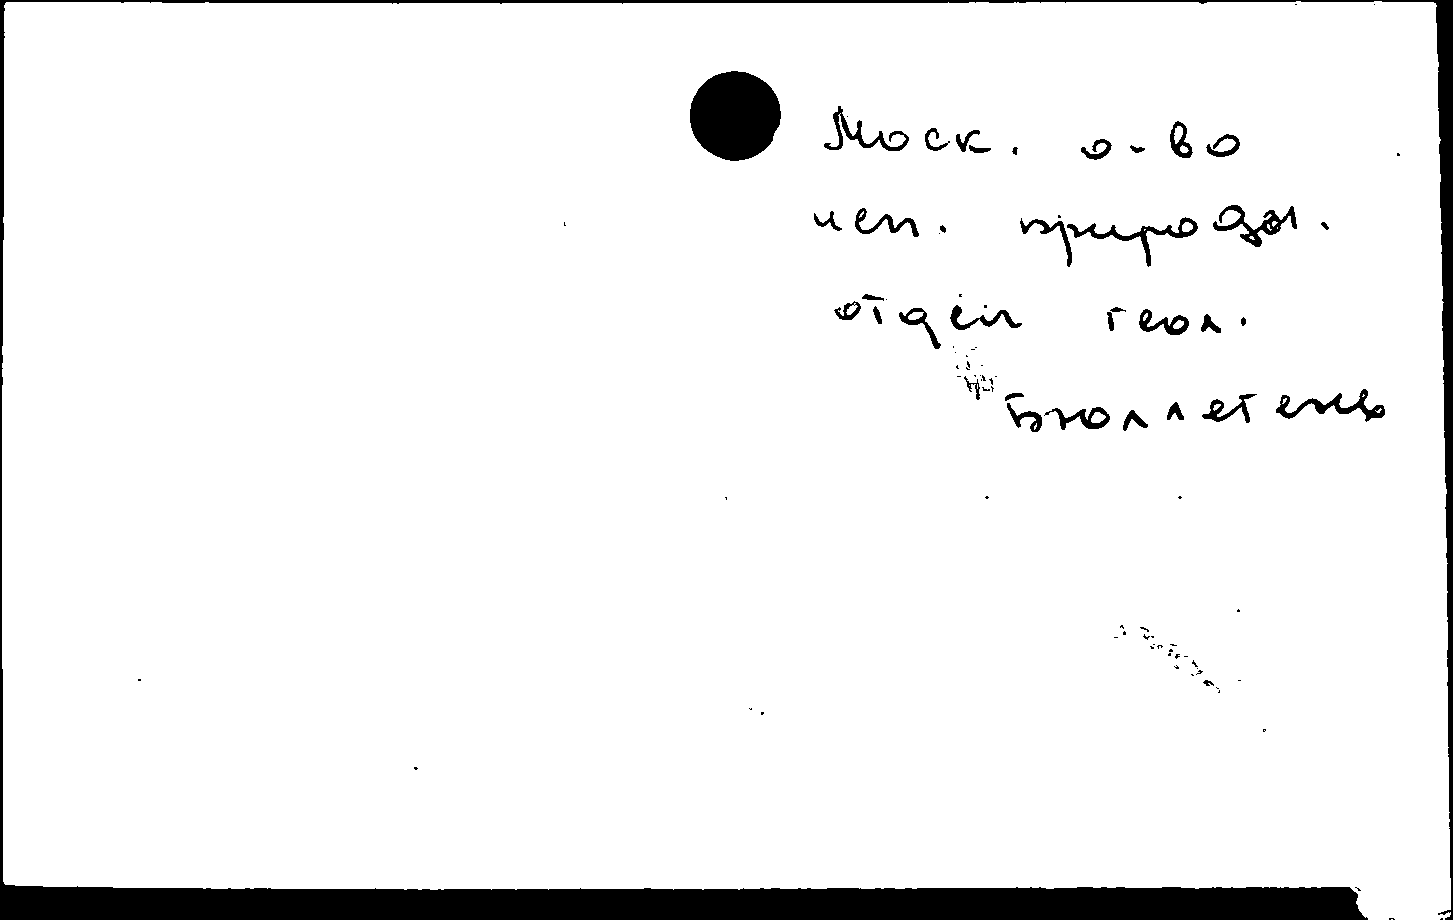 Моск. о-во
исп. природы.
отдел геол.
Бюллетень